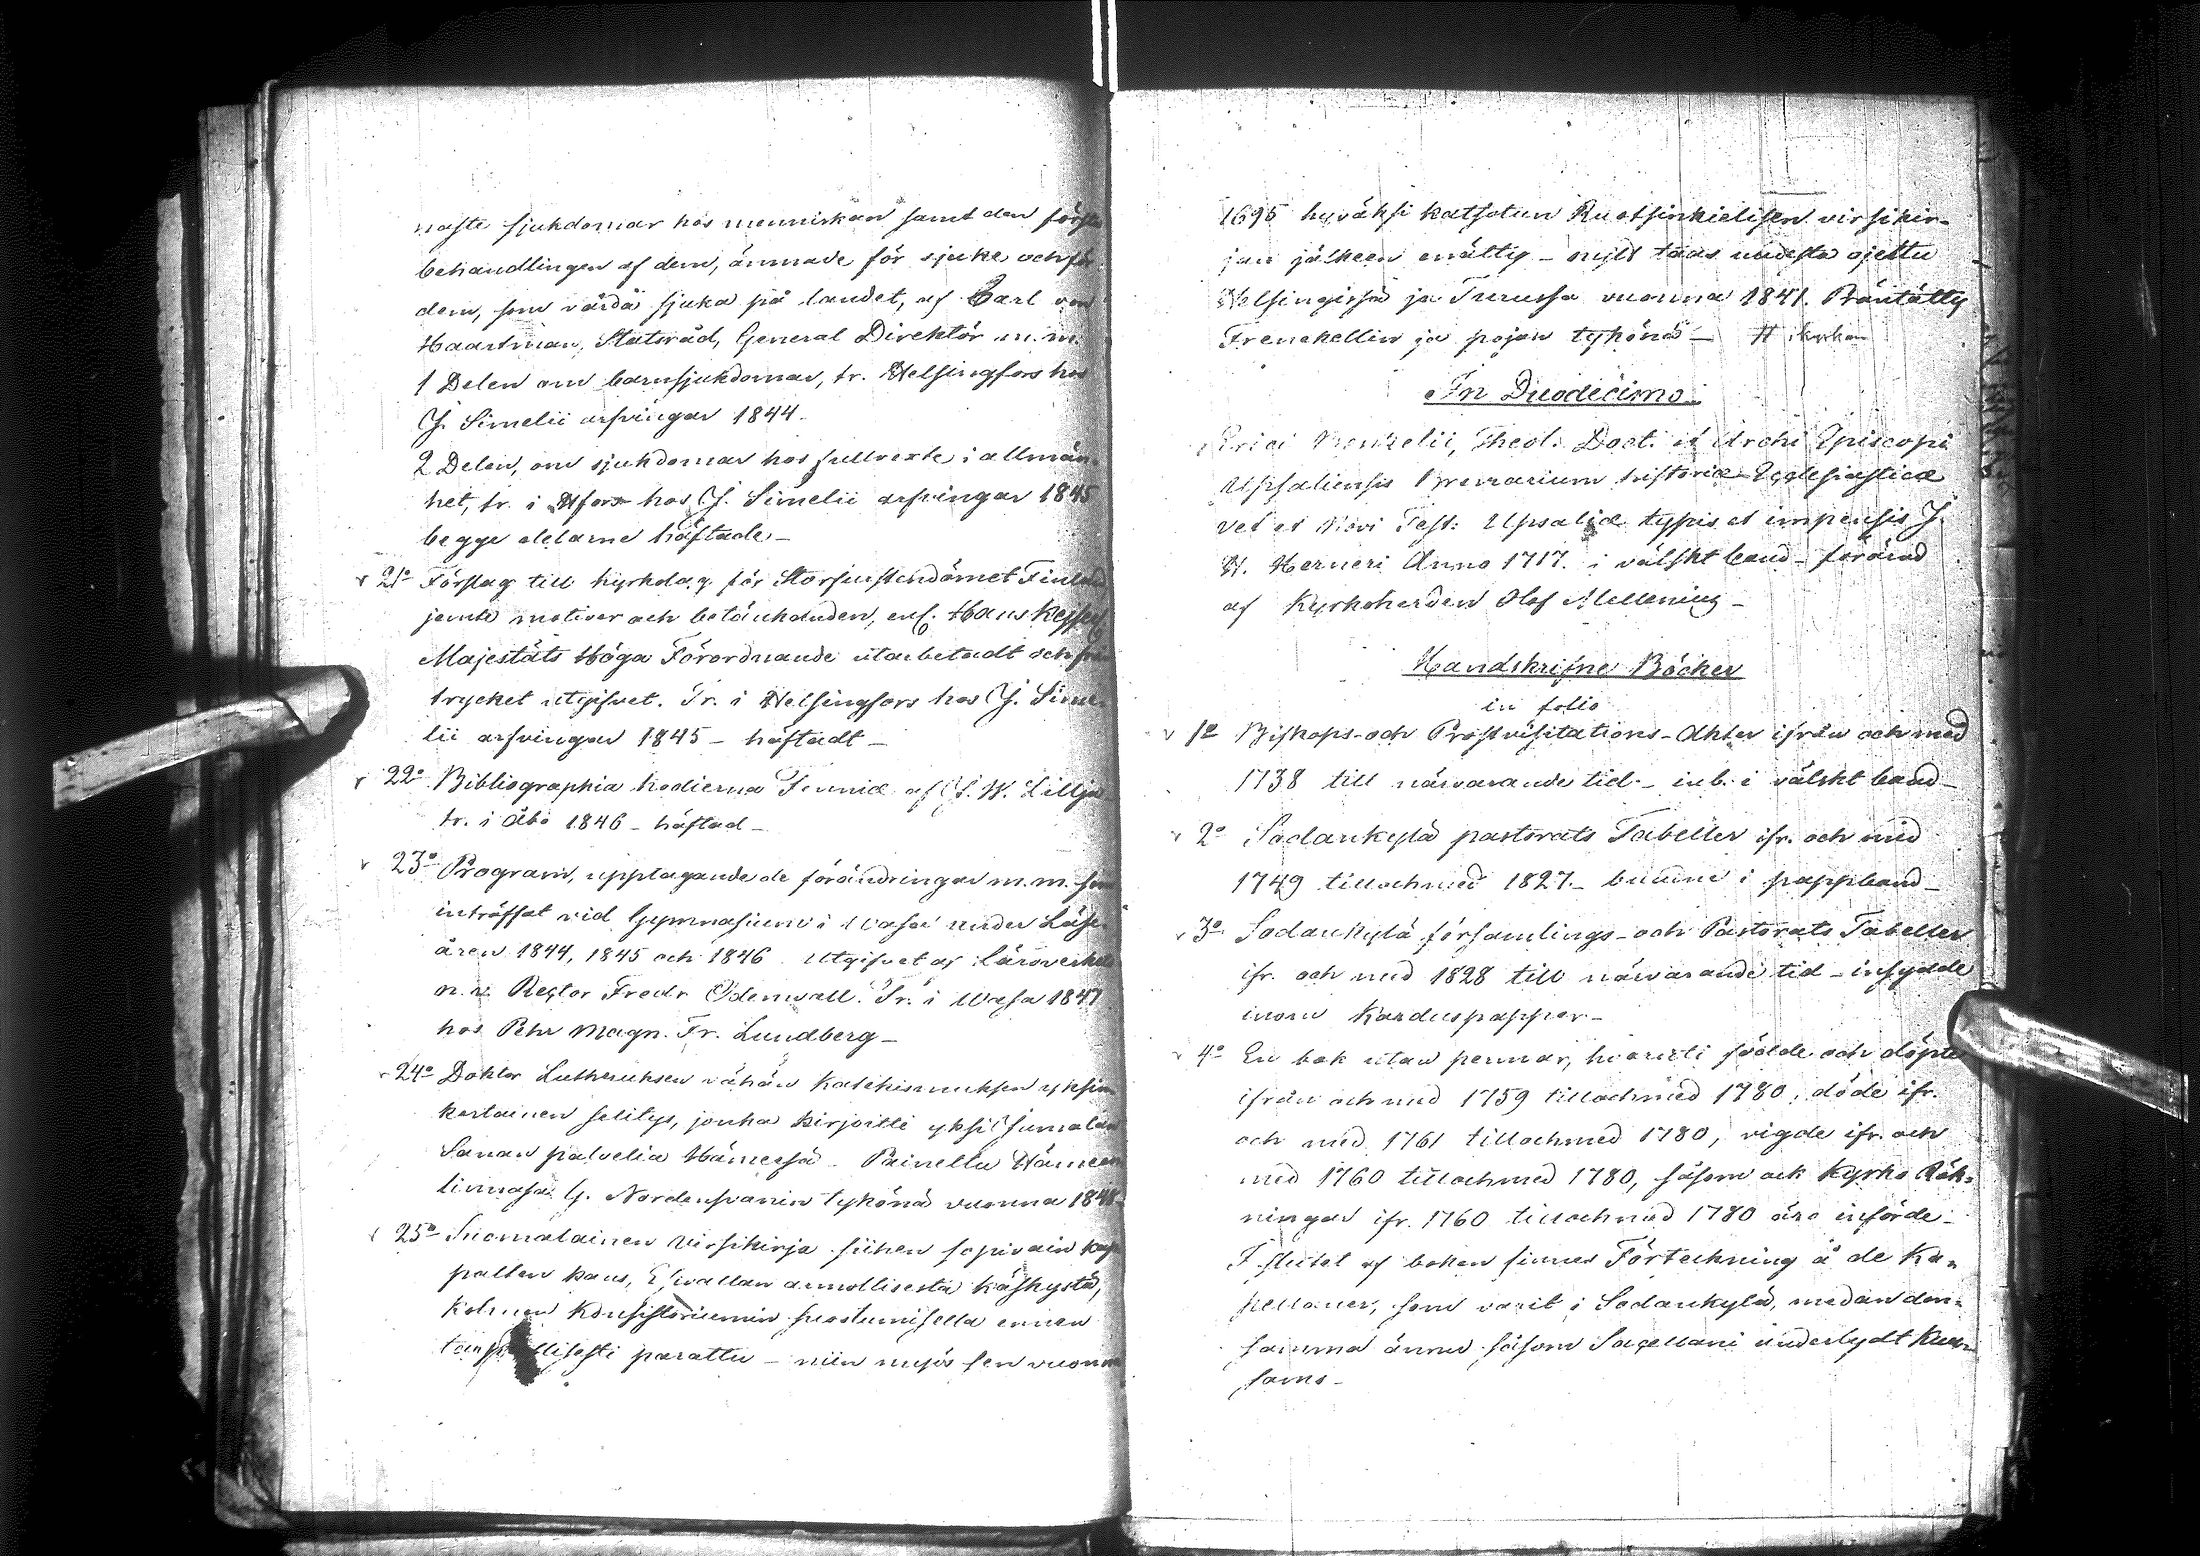 naste sjukdomar hos menniskan samt den första
behandlingen af dem, ämnade för sjuke och för
dem, som vårda sjuka på landet, af Carl von
Haartman, Statsråd, General Direktör m. m.
1 Delen om barnsjukdomar, tr. Helsingfors hos
J. Simelii arfvingar 1844.
2 Delen, om sjukdomar hos fullvexte i allmän-
het, tr. i Hfors hos J. Simelii arfvingar 1845
begge delarne häftade. -
21o Förslag till kyrkolag för Storfurstendömet Finland
jemte motiver och betänkanden, enl. Hans Kejserl.
Majestäts Höga Förordnande utarbetadt och från
trycket utgifvet. Tr. i Helsingfors hos J. Sime-
lii arfvingar 1845 - häftadt -
22o Bibliographia hodierna Fenniæ af J. W. Lillja
tr. i Åbo 1846 - häftad -
23o Program, upptagande de förändringar m. m. som
inträffat vid Gymnasium i Wasa under Läse-
åren 1844, 1845 och 1846. Utgifvet af Läroverkets
n. v. Rector Fredr. Odenwall. Tr. i Wasa 1847
hos Pehr Magn. Fr. Lundberg -
24o Doktor Lutheruksen vähän Katekismuksen yksin-
kertainen selitys, jonka kirjoitti yksi Jumalan
Sanan palvelia Hämeessä. Painettu Hämeen-
linnassa G. Nordensvanin tykönä vuonna 1848-
25o Suomalainen Virsikirja siihen sopivain kap-
palten kans, Esivallan armollisesta käskystä,
kolmen Konsistoriumin suostumisella ennen
parattu - niin myös sen vuonna
1695 hyväksi katsotun Ruotsinkielisen virsikir-
jan jälkeen enätty - nytt taas uudesta ojettu
Helsingissä ja Turussa vuonna 1841. Präntätty
Frenckellin ja pojan tykönä - # i kyrkan
In Duodecimo.
Erici Benzelii, Theol. Doct. et Archi Episcopi
Upsaliensis Breviarium historiæ Ecclesiasticæ
Vet et Novi Test: Upsaliæ typis et impensis J.
H. Werneri Anno 1717. i välskt band - förärad
af Kyrkoherden Olof Mellening -
Handskrifne Böcker
in folio
1o Biskops- och Prostvisitations-Akter ifrån och med
1738 till närvarande tid - inb. i välskt band -
2o Sodankylä pastorats Tabeller ifr. och med
1749 till och med 1827 - bundne i pappband -
3o Sodankylä församlings- och Pastorats Tabeller
ifr. och med 1828 till närvarande tid - insydde
inom Karduspapper. -
4o En bok utan permar, hvaruti födde och döpte
ifrån och med 1759 till och med 1780, döde ifr.
och med 1761 till och med 1780, vigde ifr. och
med 1760 till och med 1780, såsom ock Kyrko Räk-
ningar ifr. 1760 till och med 1780 äro införde -
I slutet af boken finnes Förteckning å de Ka-
pellaner, som varit i Sodankylä, medan den-
samma ännu såsom Sacellani underlydt Kuu-
samo -